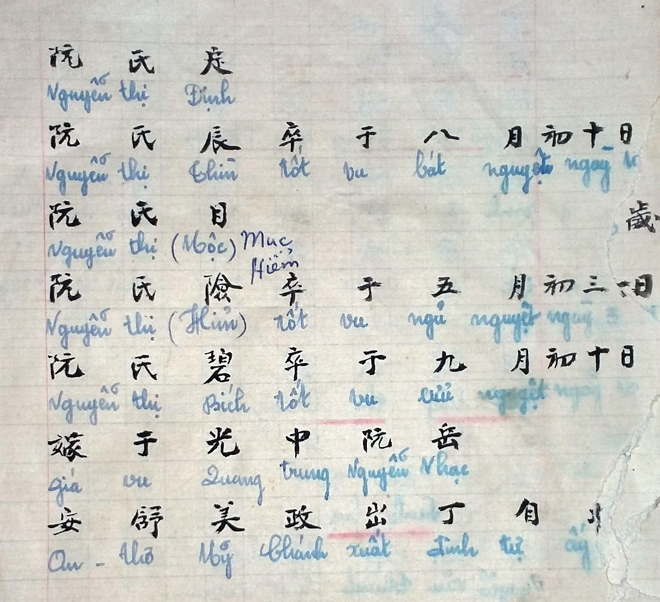 阮 氏 定
Nguyễn thị Định
阮 氏 辰 卒 于 八 月 初 十 日
Nguyễn thị Thìn tốt vu bát nguyệt ngày
阮 氏 目 歲
Nguyễn thị (Mộc) Mục
Hiểm
阮 氏 險 卒 于 五 月 初 三 日
Nguyễn thị (Hiển) tốt vu ngũ nguyệt ngày 3
阮 氏 碧 卒 于 九 月 初 十 日
Nguyễn thị Bích tốt vu cửu nguyệt ngày
嫁 于 光 中 阮 岳
giá vu Quang trung Nguyễn Nhạc
安 舒 美 政 出 丁 自
An - thơ Mỹ Chánh xuất đinh tự ấy